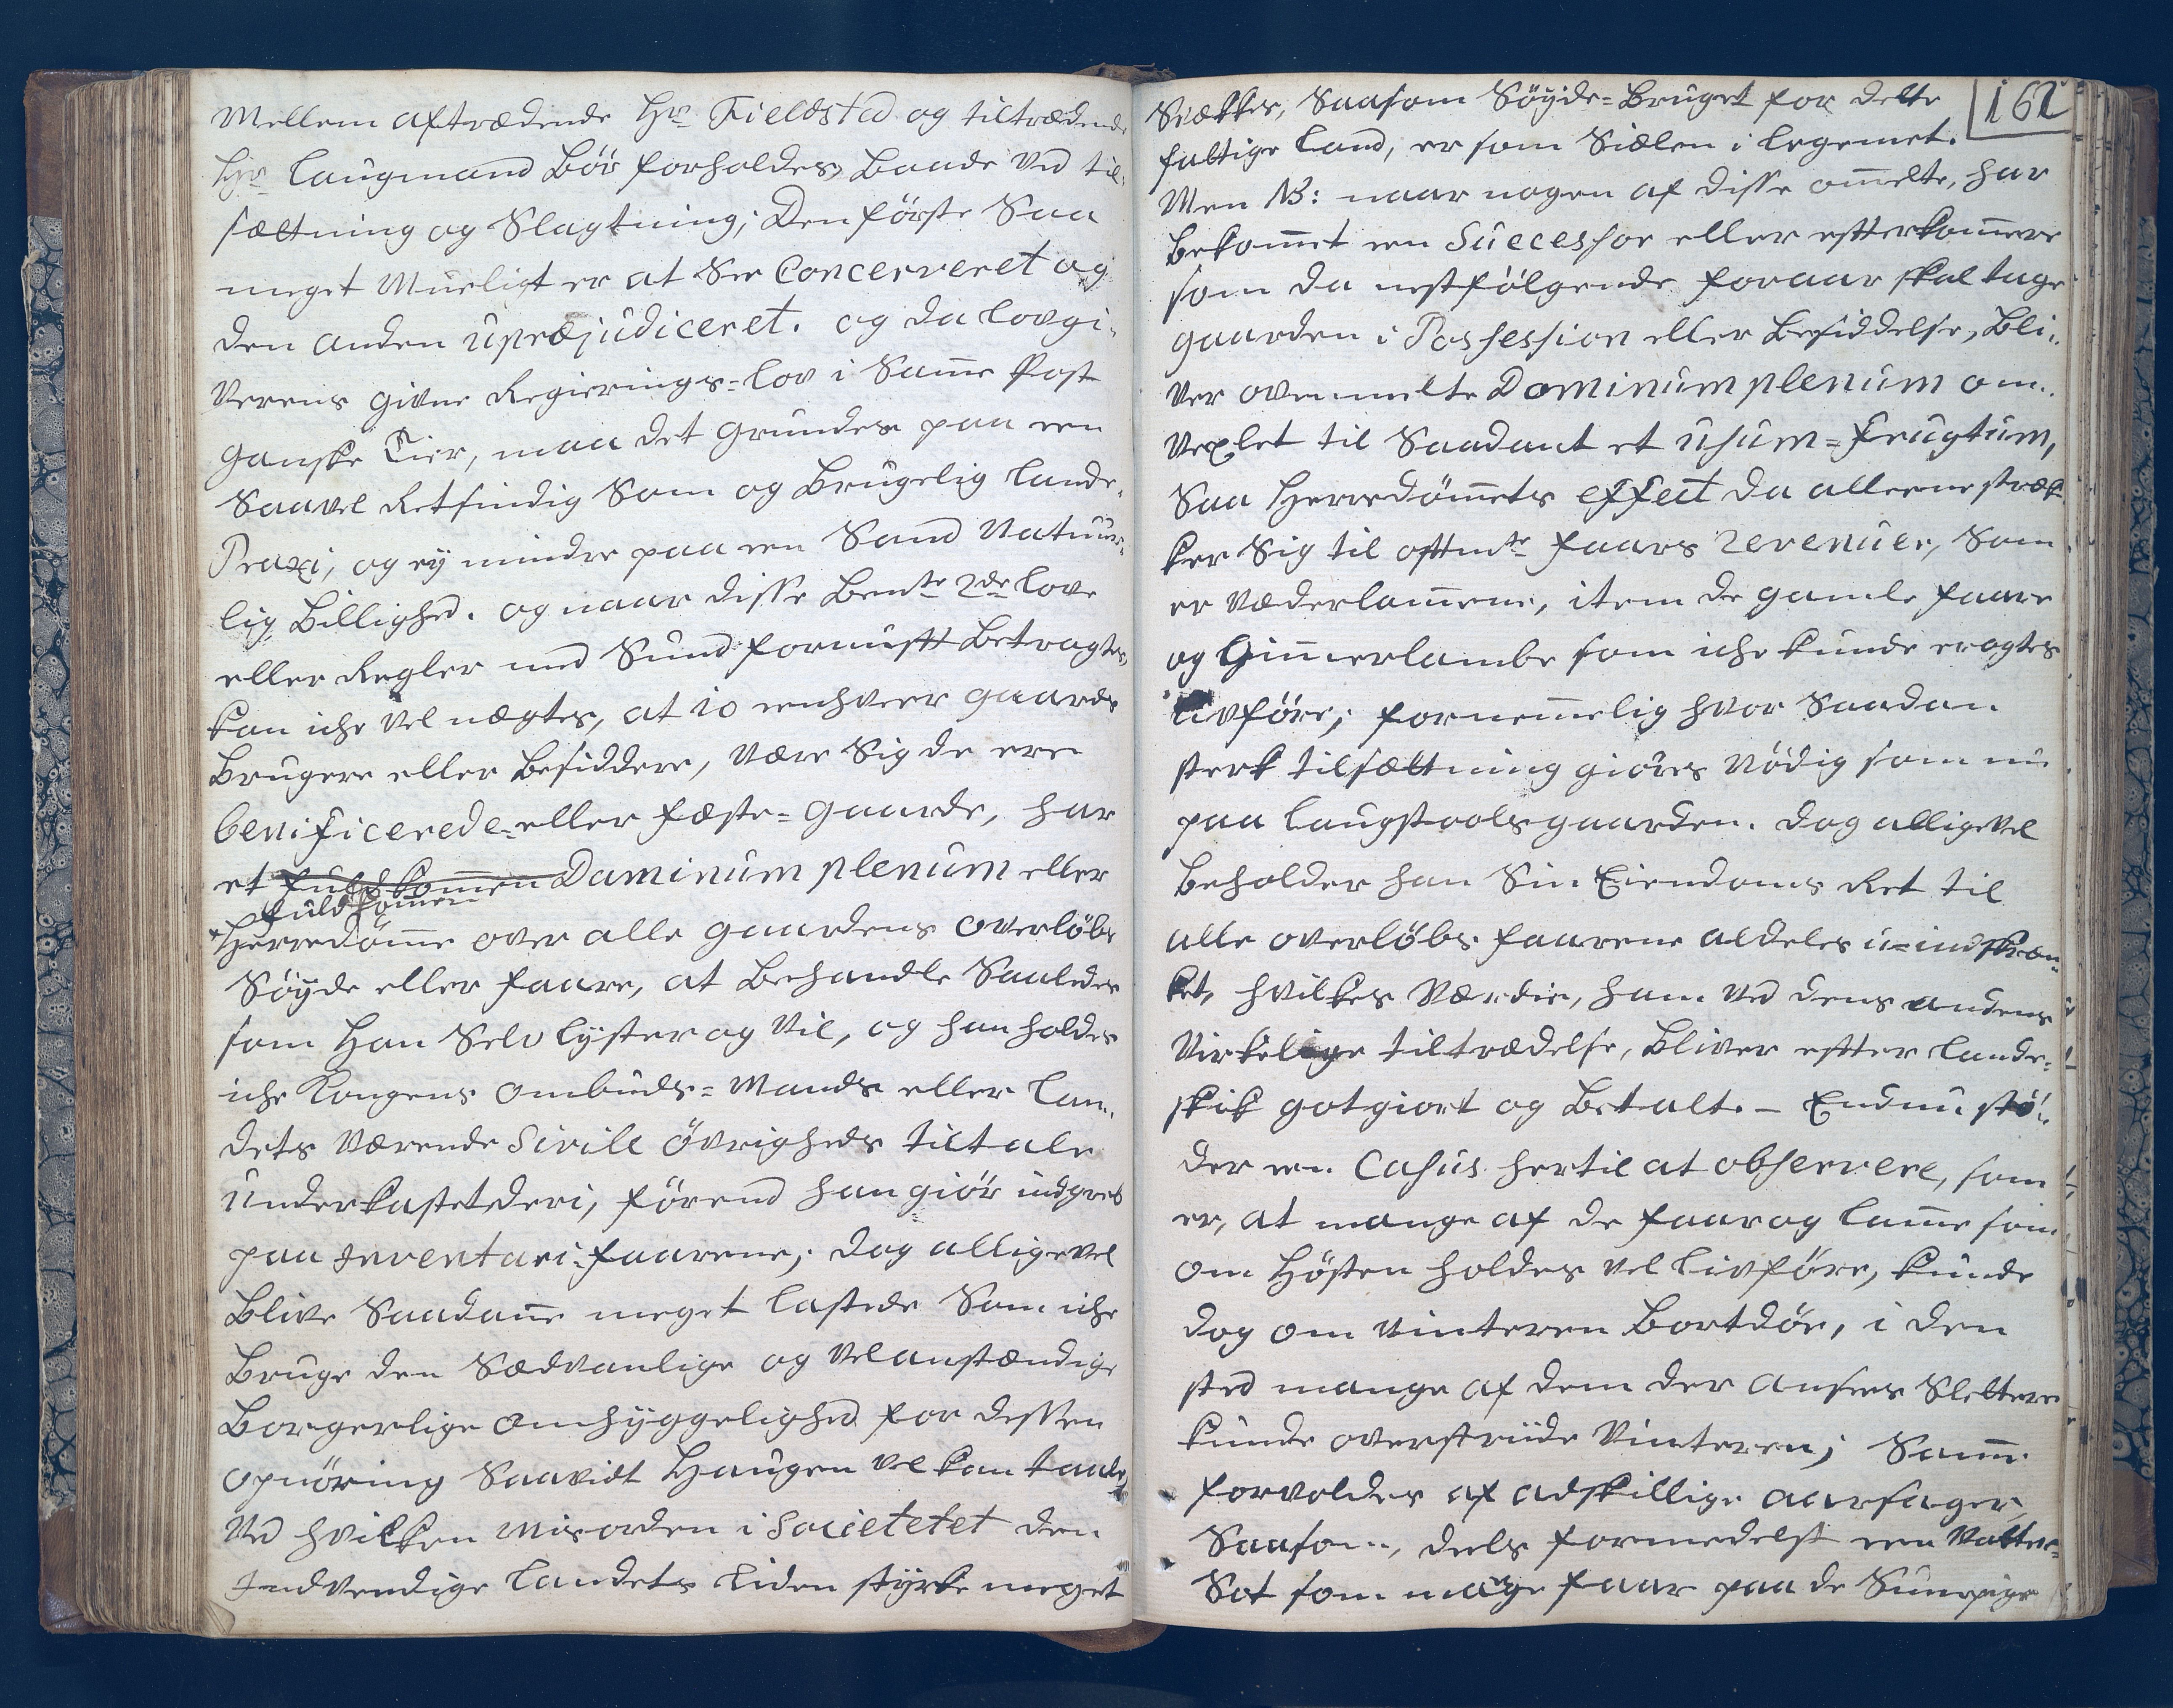 Mellem aftrædende Hr Fieldsted og tiltrædende
Hr Laugmand bör forholdes, baade ved til-
sættning og Slagtning; den förste Saa
meget Mueligt er at See Conserveret og
den anden upræjudiceret. og da Lovgi-
verens givne Regierings-Lov i Samme Post
ganske Tier, maa det grundes paa een
Saavel Retsindig Som og Brugelig Lands-
Praxi, og ey mindre paa een Sand Natuur-
lig Billighed. og naar disse Bemte 2de Love
eller Regler med Sund fornufft Betragtes,
kan iche vel nægtes, at 1o eenhveer gaards
Brugere eller Besiddere, være Sig de ere
benificerede- eller fæste-gaarde, har
et Dominum plenum eller
fuldkomen
*Herredömme over alle gaardens overlöbs
Söyde eller faare, at Behandle Saaledes
som Han Selv lyster og vil, og han holdes
iche Kongens ombuds-Mands eller Lan-
dets værende Sivile Övrigheds tiltale
underkastet deri, förend han giör indgreb
paa Inventari-faarene; dog alligevel
blive Saadanne meget lastede Som iche
bruge den Sædvanlige og velanstændige
Borgerlige omhyggelighed for dessen
opnöring Saavidt Haugen vel kan taale,
ved hvilken Misorden i Societetet den
Indvendige Landets Liden styrke meget
162
Svækkes, Saasom Söyde-Bruget for dette
fattige Land, er som Siælen i Legemet.
Men NB: naar nogen af disse ommelte, har
bekommet een Successor eller effterkommere
som da nestfölgende foraar skal tage
gaarden i Possession eller Besiddelse, bli-
ver ovenmelte Dominum plenum om-
vexlet til Saadant et usum-Frugtum,
Saa Herredömmets effect da alleene stræk-
ker Sig til offtmte faars revenuer, Som
er væderlammene, item de gamle faare
og Gimmerlambe som iche kunde eragtes
Livföre; fornemmelig hvor Saadan
sterk tilsættning giöres Nödig som nu
paa Laugstoolsgaarden. dog alligevel
beholder han Sin Eiendoms Ret til
alle overlöbs faarene aldeles u-indskræn-
ket, hvilkes Værdie, ham ved dens andens
Virkelige tiltrædelse, bliver effter Lands-
skik gotgiort og Betalt. - Endnu stö-
der een Casus hertil at observere, som
er, at mange af de faar og Lamme som
om Hösten holdes vel Livföre, kunde
dog om Vinteren bortdöe, i den
sted mange af dem der ansees Slettere
kunde overstriide Vinteren; Samme
forvoldes af adskillige aarsager,
Saasom, deels formedelst een Vatter-
Sot som mange faar paa de Sumpige